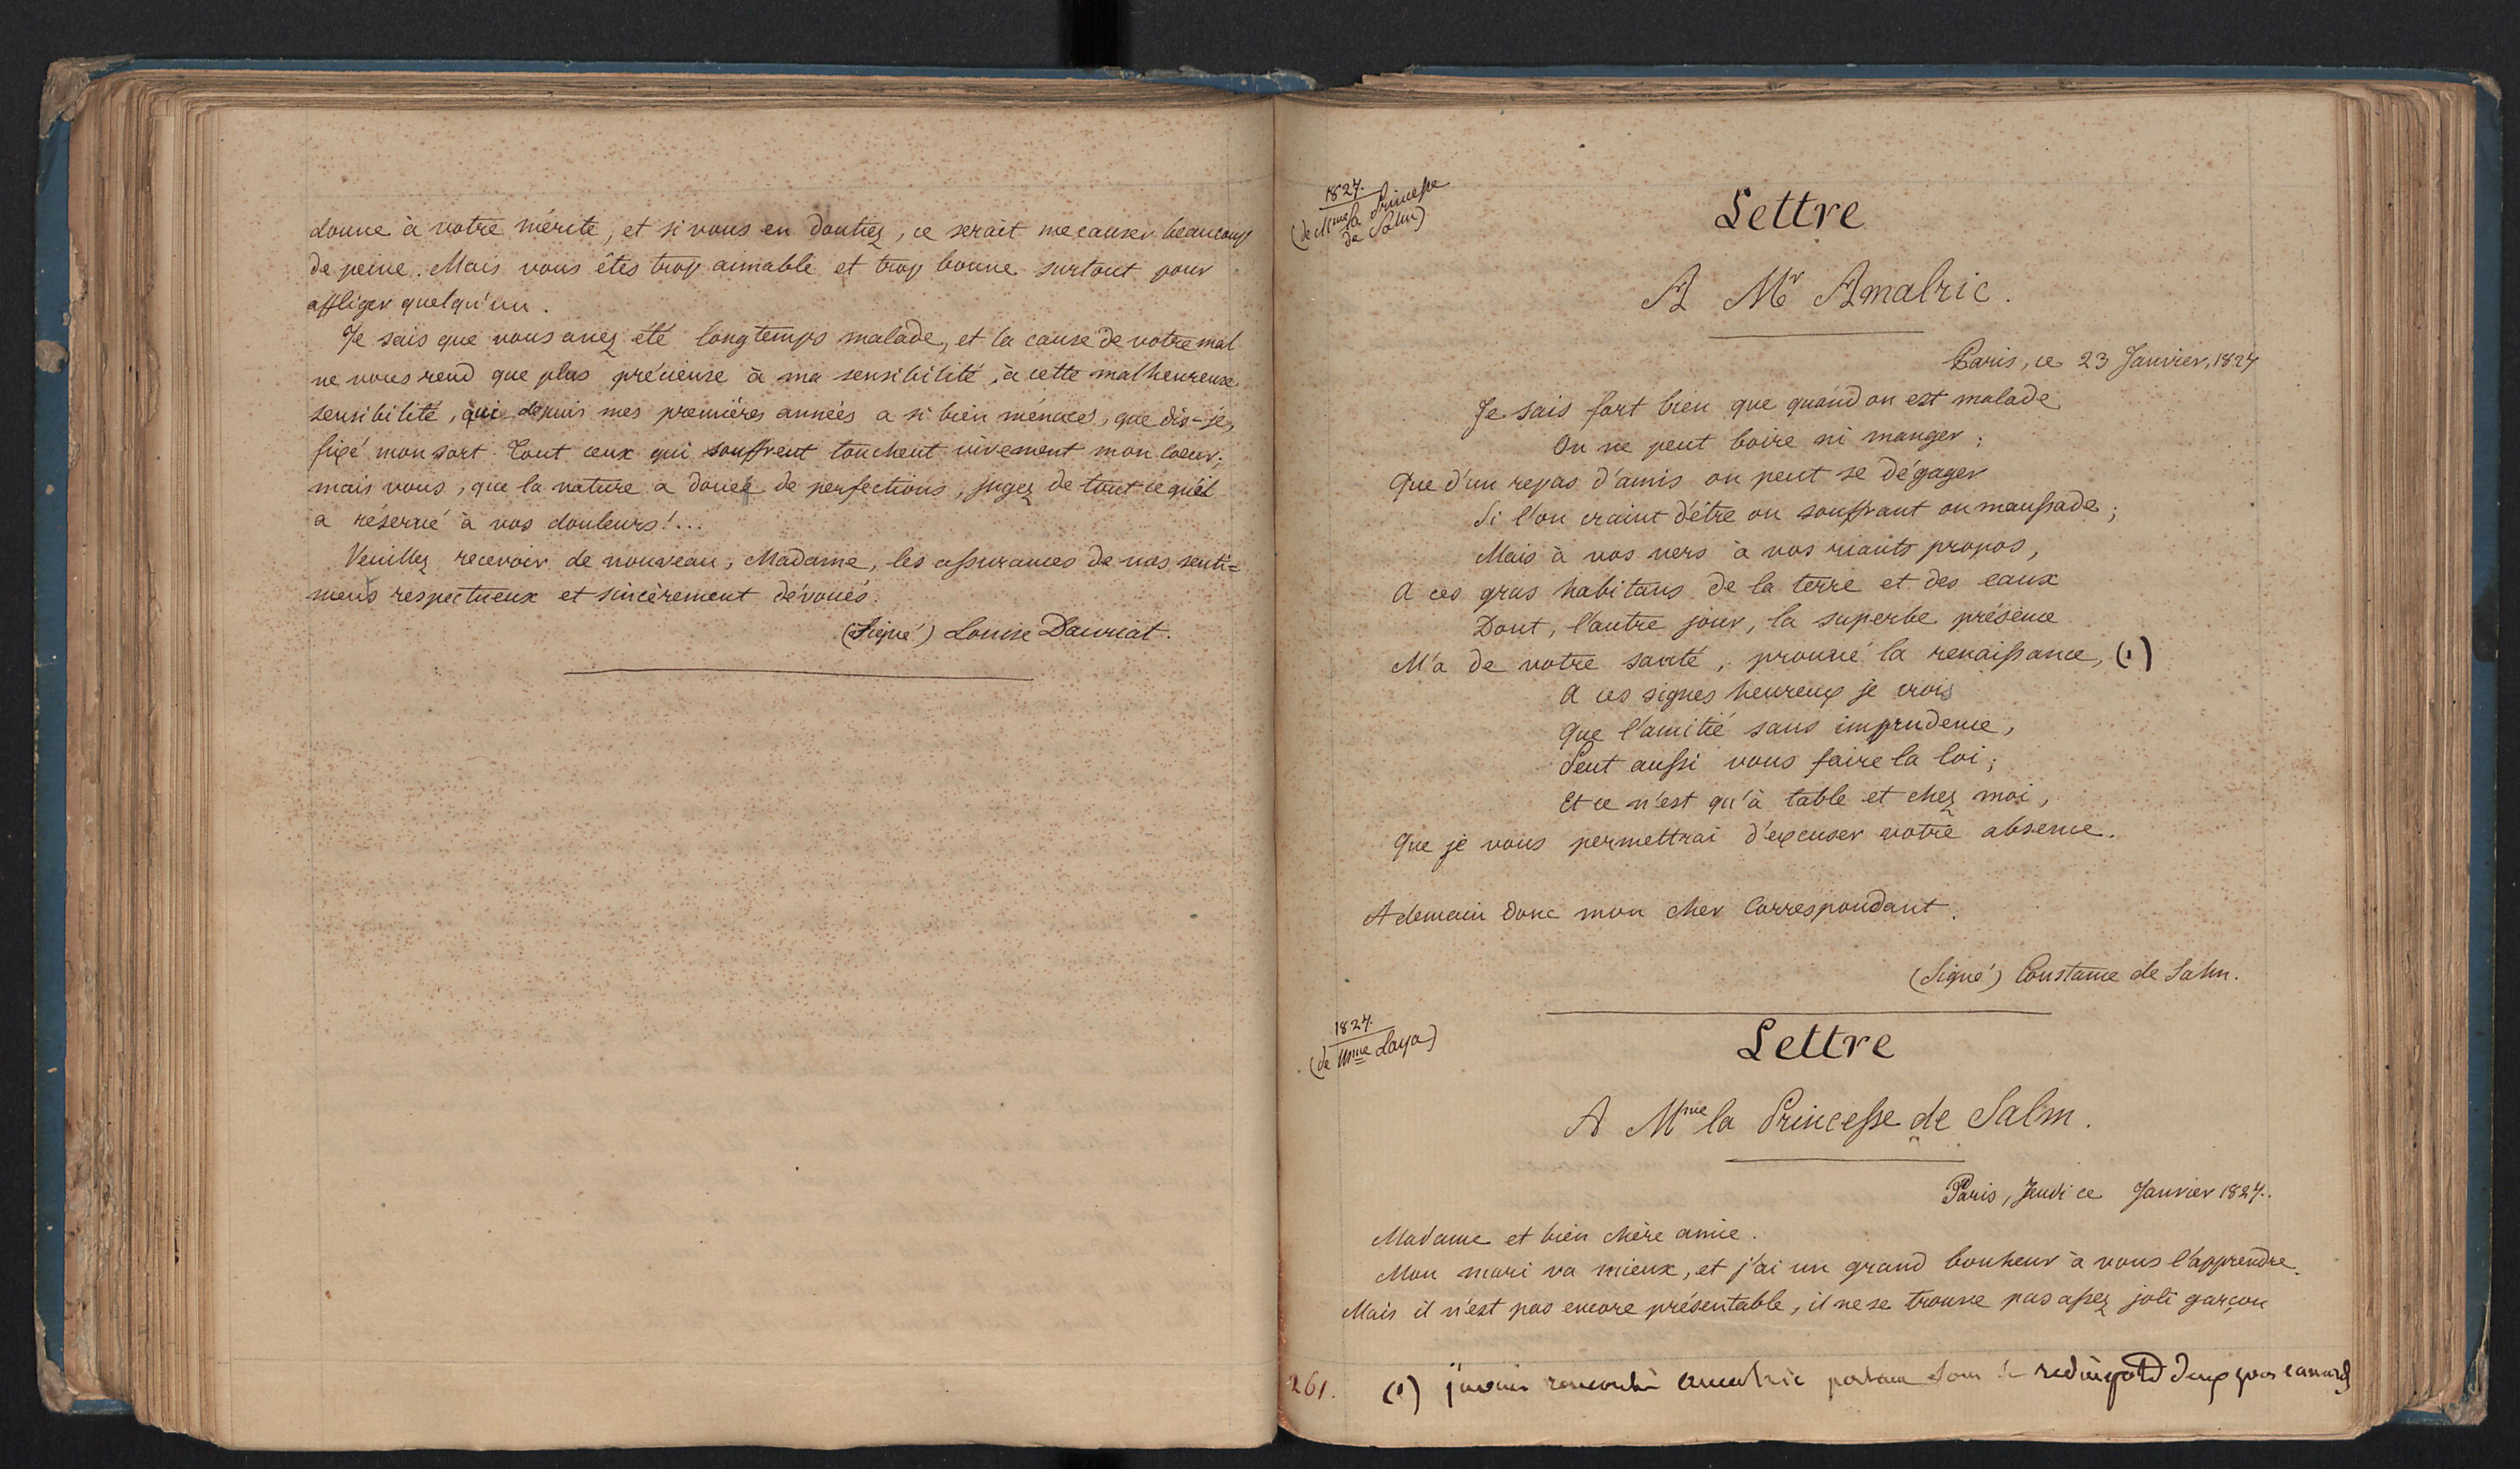 donne à votre mérite, et si vous en doutiez, ce serait me causer beaucoup
de peine. Mais vous êtes trop aimable et trop bonne surtout pour
affliger quelqu'un.
Je sais que vous avez été longtemps malade, et la cause de votre mal
ne vous rend que plus précieuse à ma sensibilité, à cette malheureuse
sensibilité, qui depuis mes premières années a si bien menacé, que dis-je,
fixé mon sort. Tout ceux qui souffrent touchent vivement mon coeur;
mais vous, que la nature a douée de perfections, jugez de tout ce qu'il
a réservé à vos douleurs!...
Veuillez recevoir de nouveau, Madame, les assurances de nos senti=
mens respectueux et sincèrement dévoués.
(Signé) Louise Dauriat.
1827.
(de Mme la Princesse
de Salm)
Lettre
A Mr Amalric.
Paris, ce 23 Janvier, 1827
Je sais fort bien que quand on est malade
On ne peut boire ni manger;
Que d'un repas d'amis on peut se dégager
Si l'on craint d'être ou souffrant ou maussade;
Mais à vos vers à vos riants propos,
A ces gras habitans de la terre et des eaux
Dont, l'autre jour, la superbe présence
M'a de votre santé, prouvé la renaissance, (1)
A ces signes heureux je crois
Que l'amitié sans imprudence,
Peut aussi vous faire la loi;
Et ce n'est qu'à table et chez moi,
Que je vous permettrai d'excuser votre absence.
A demain donc mon cher Correspondant.
(Signé) Constance de Salm.
1827.
(de Mme Laya)
Lettre
A Mme la Princesse de Salm.
Paris, Jeudi ce Janvier 1827.
Madame et bien chère amie.
Mon mari va mieux, et j'ai un grand bonheur à vous l'apprendre.
Mais il n'est pas encore présentable, il ne se trouve pas assez joli garçon
261.
(1) j'avais rencontré Amalric portant sous sa redingote deux gros canards